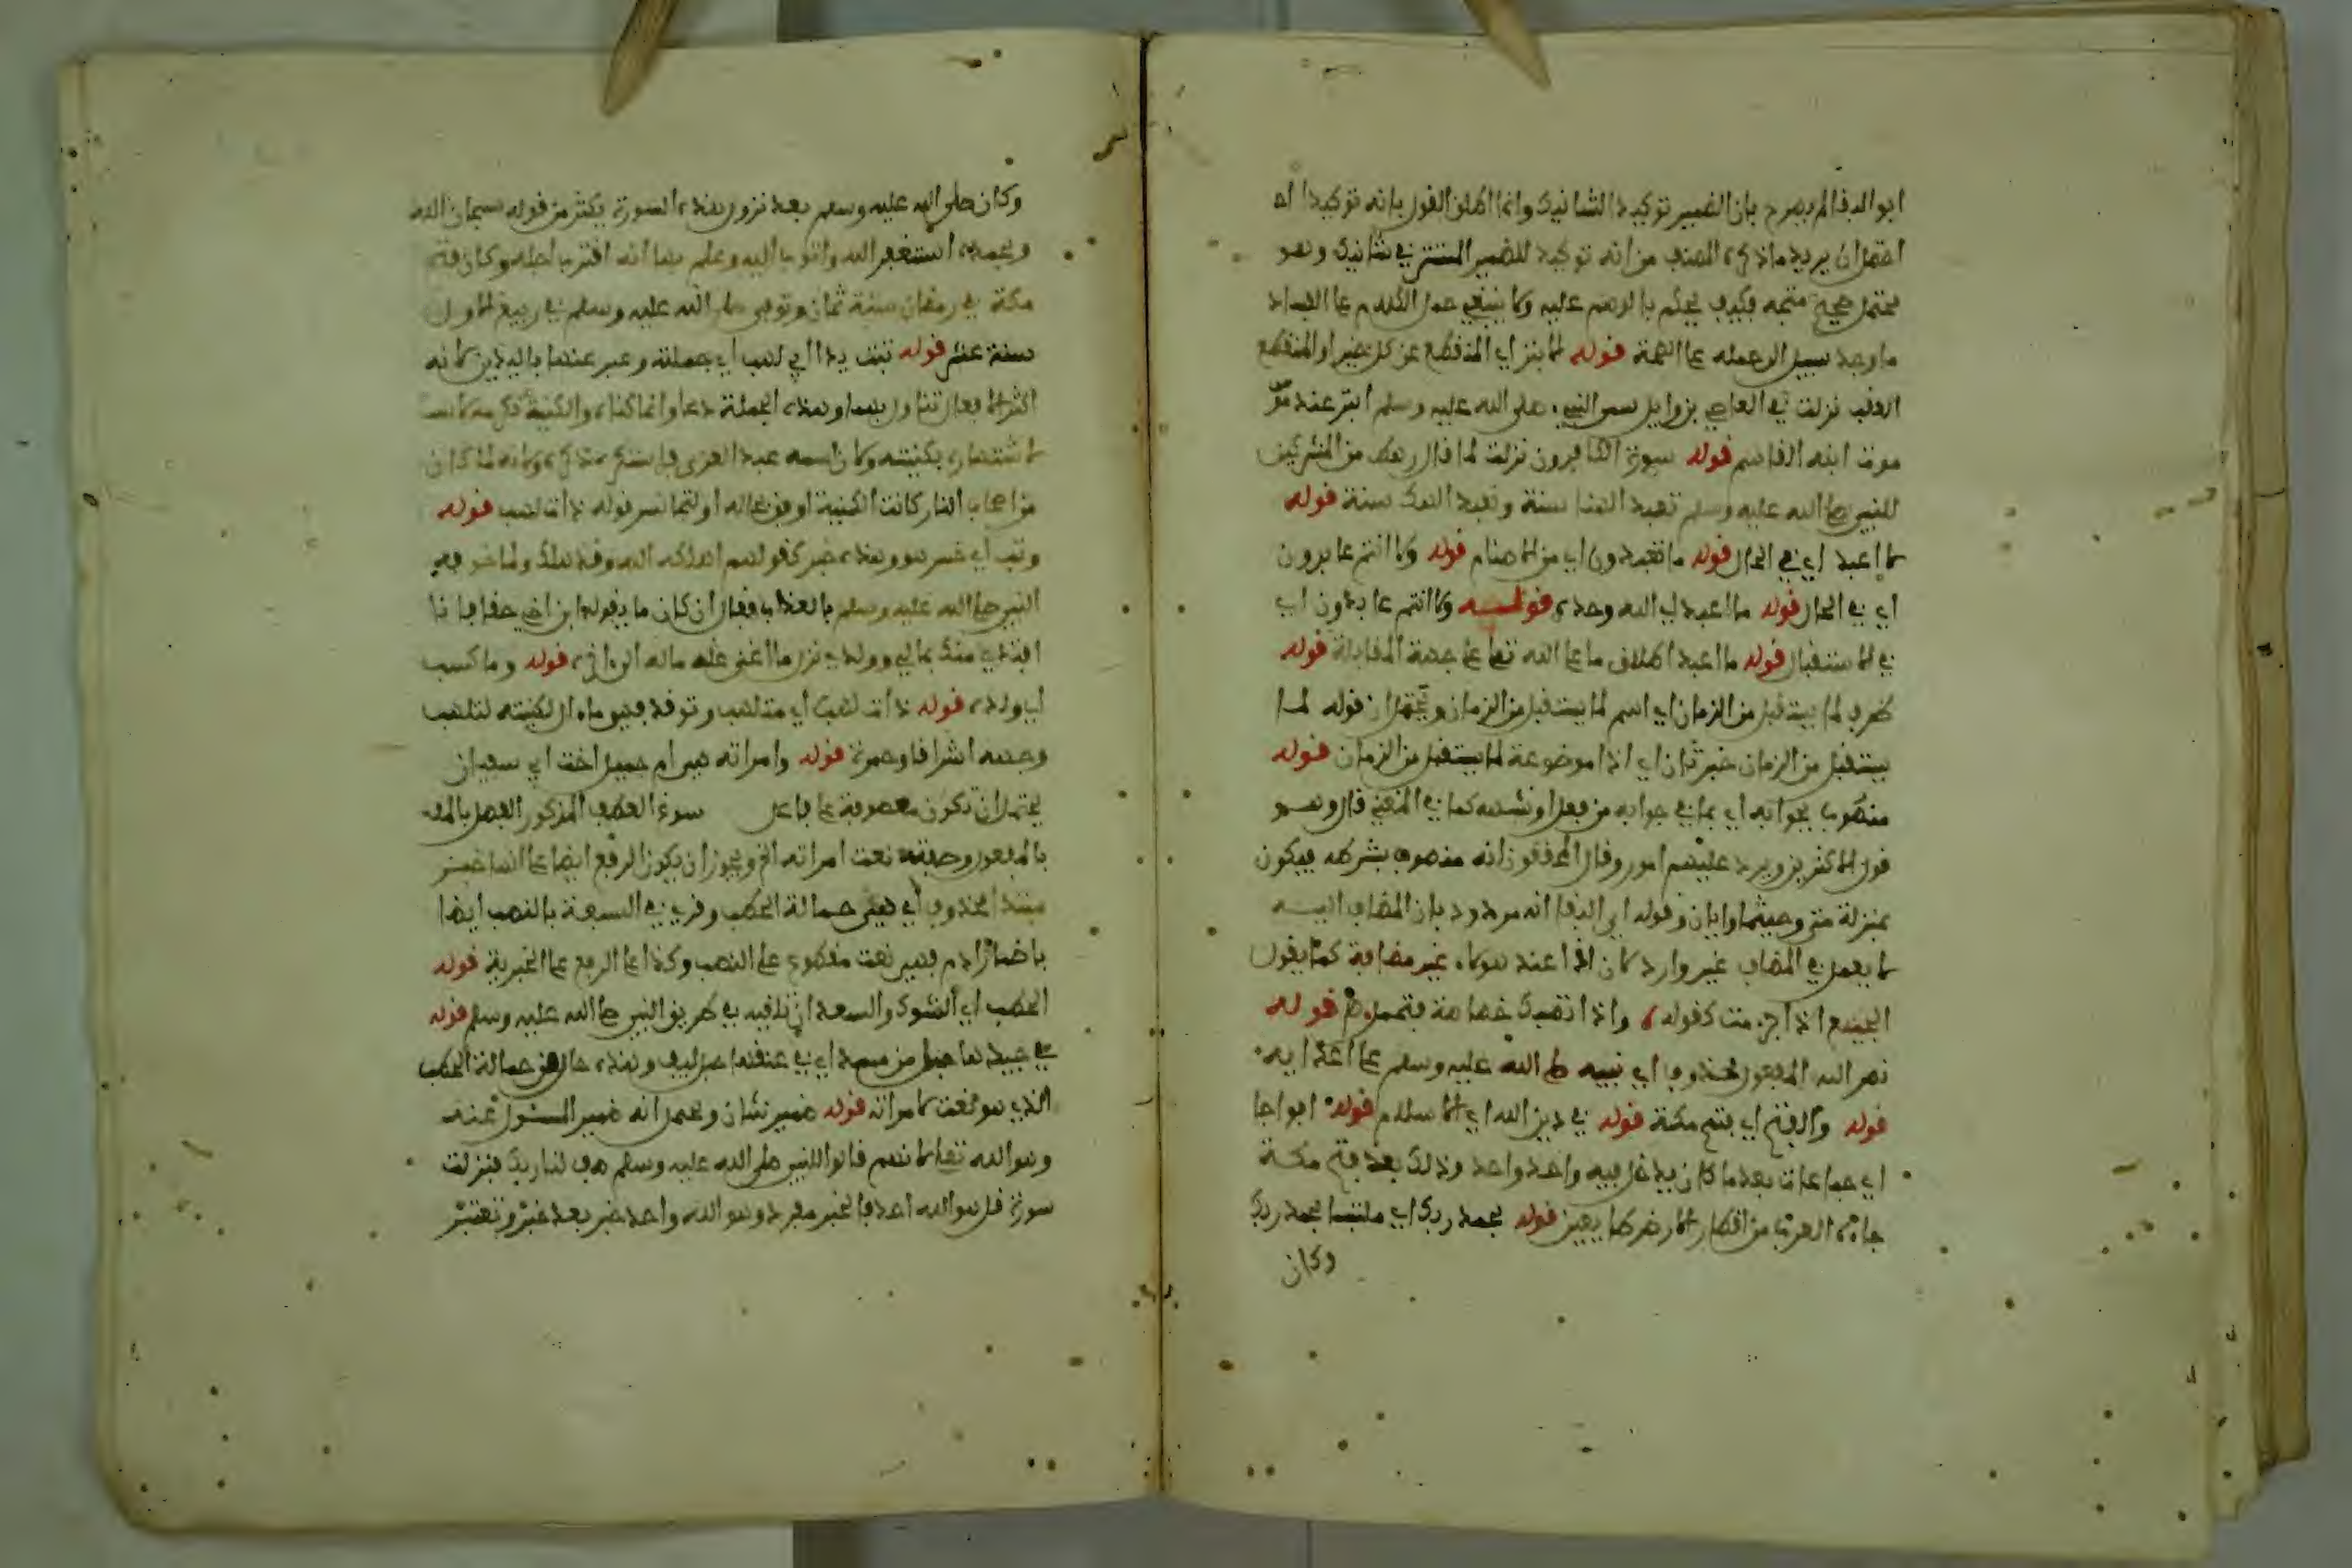 ابو البقا لم يصرح بان الضمير توكيد الشانيك وانما اطلق القول بانه توكيد اه
احتمل ان يريد ما ذكره المصنف من انه توكيد للضمير المستتر في شانيك وهو
محتمل صحيح متجه فكيف يحكم بالوهم عليه ولا ينبغي حمل الكلام على الفساد
ما وجد سبيل الى حمله على الصحة قوله الابتر اي المنقطع عن كل خير او المنقطع
العقب نزلت في العاصي بن وايل سمى النبي صلى الله عليه وسلم ابتر عند
موت ابنه القاسم قوله سورة الكافرون نزلت لما قال رهط من المشركين
للنبي صلى الله عليه وسلم تعبد الهتنا سنة ونعبد الهك سنة قوله
لا اعبد اي في الحال قوله ما تعبدون اي من الاصنام قوله ولا انتم عابدون
اي في الحال قوله ما اعبد اي الله وحده قوله ولا انتم عابدون اي
في الاستقبال قوله ما اعبد اطلاق ما على الله تعلى على جهة المقابلة قوله
ظرف لما يستقبل من الزمان اي اسم لما يستقبل من الزمان ويحتمل ان قوله لما
يستقبل من الزمان خبر ثان اي اذا موضوعة لما يستقبل من الزمان قوله
منصوب بجوابه اي بما في جوابه من فعل او شبهه كما في المغني قال وهو
قول الاكثرين ويرد عليهم امور وقال المحققون انه منصوب بشرطه فيكون
بمنزلة متى وحيثما وايان وقوله ابي البقا انه مردود بان المضاف اليه
لا يعمل في المضاف غير وارد لان اذا عند هولاء غير مضافة كما يقول
الجميع اذا جزمت كقوله واذا تصبك خصاصة فتحمل قوله
نصر الله المفعول محذوف اي نبيه صلى الله عليه وسلم على اعدايه
قوله والفتح اي فتح مكة قوله في دين الله اي الاسلام قوله افواجا
اي جماعات بعد ما كان يدخل فيه واحد واحد وذلك بعد فتح مكة
جاءه العرب من اقطار الارض طايعين قوله بحمد ربك اي ملتبسا بحمد ربك
وكان
وكان صلى الله عليه وسلم بعد نزول هذه السورة يكثر من قوله سبحان الله
وبحمده استغفر الله واتوب اليه وعلم بها انه اقترب اجله وكان فتح
مكة في رمضان سنة ثمان وتوفي صلى الله عليه وسلم في ربيع الاول
سنة عشر قوله تبت يدا ابي لهب اي جملته وعبر عنها باليدين لانه
اكثر الافعال تزاول بهما وهذه الجملة دعا وانما كناه والكنية
لاشتهاره بكنيته ولان اسمه عبد العزى فاستكره ذكره ولانه لما كان
من اصحاب النار كانت الكنية اوفق بحاله او لتجانس قوله ذات لهب قوله
وتب اي خسر هو وهذه خبر كقولهم اهلكه الله وقد هلك ولما خوفه
النبي صلى الله عليه وسلم بالعذاب فقال ان كان ما يقوله ابن اخي حقا فانا
افتدي منه بمالي وولدي نزل ما اغنى عنه ماله الى اخره قوله وما كسب
اي ولده قوله ذات لهب اي متلهب وتوقد فهو مال لكنيته لتلهب
وجهه اشراقا وحمرة قوله وامراته هي ام جميل اخت ابي سفيان
يحتمل ان تكون معطوفة على فاعل سوغ العطف المذكور الفصل
بالمفعول وصفته نعت امراته الخ ويجوز ان يكون الرفع ايضا على انها خبر
مبتدا محذوف اي هي حمالة الحطب وقري في السبعة بالنصب ايضا
باضمار اذم فهي نعت مقطوع على النصب وكذا على الرفع على الخبرية قوله
الحطب اي الشوك والسعدان تلقيه في طريق النبي صلى الله عليه وسلم قوله
في جيدها حبل من مسد اي في عنقها حبل ليف وهذه حال من حمالة الحطب
الذي هو نعت لامراته قوله ضمير شان ويحتمل انه ضمير المسئول عنه
وهو الله تعلى لانهم قالوا للنبي صلى الله عليه وسلم صف لنا ربك فنزلت
سورة قل هو الله احد فالخبر مفرد وهو الله واحد خبر بعد خبر وتعتبر